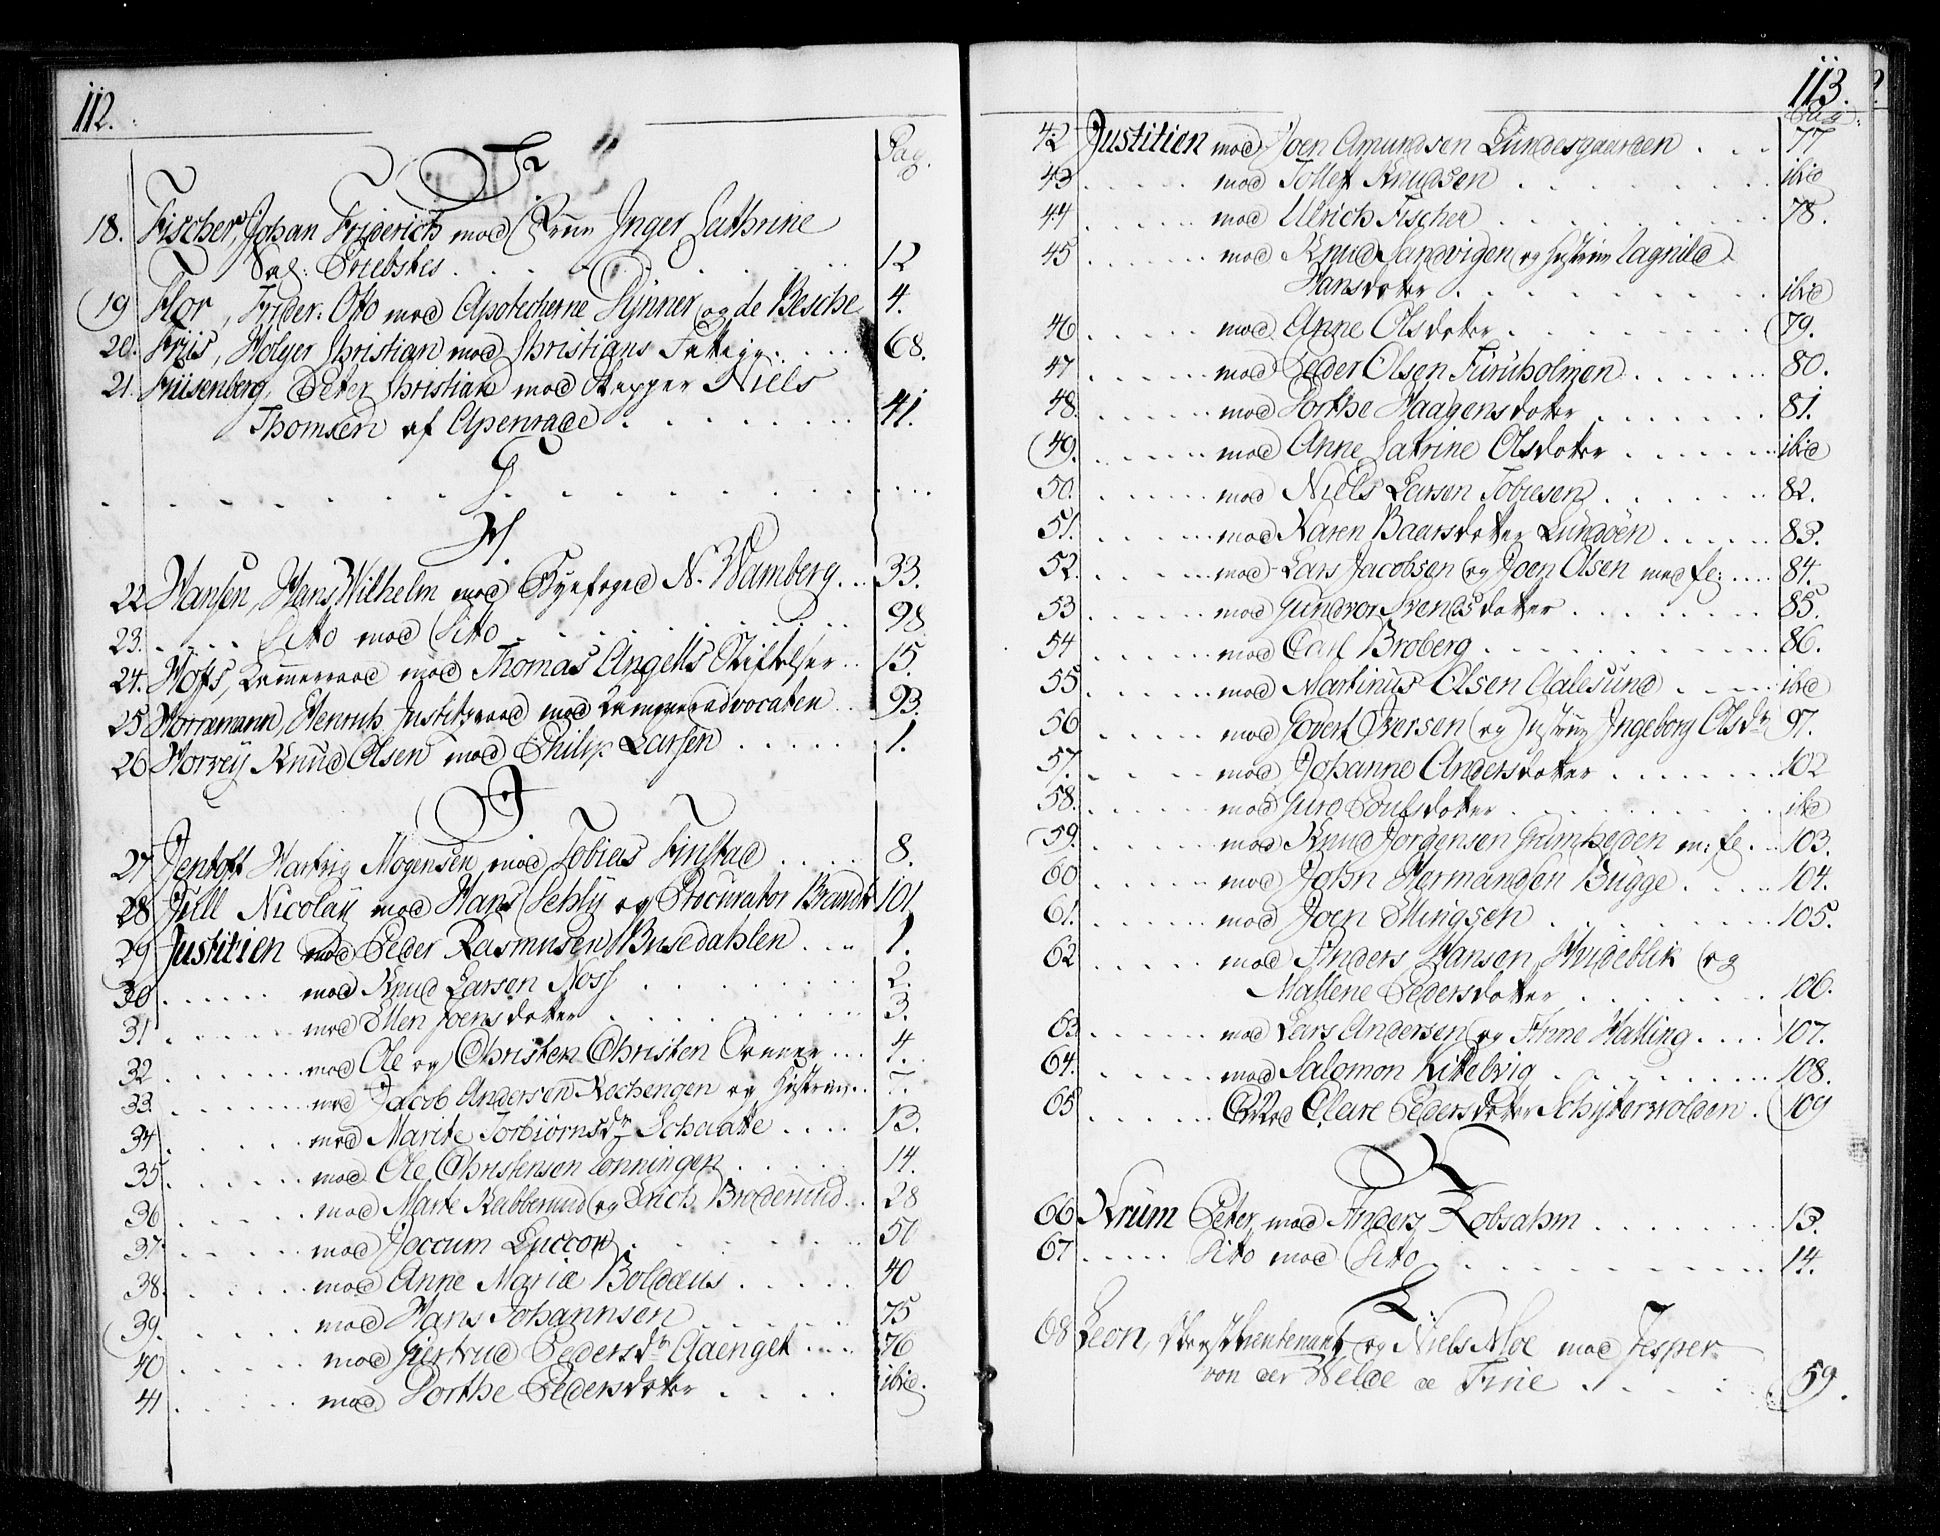 112.
F.
Pag.
18. Fischer, Johan Friderich mod Frue Inger Cathrine
Sal: Friebskes 12
19 Flor, Frider: Otto mod Apothecherne Dynner og de Besche 4.
20. Friis, Holger Christian mod Christians Fattige 68.
21. Friisenberg, Peter Christian mod Skipper Niels
Thomsen af Apenrade 41.
G.
H.
22 Hansen, Hans Wilhelm mod Byefoged N. Wamberg 33.
23. Dito mod Dito 98
24. Hoffs, Cammerraad mod Thomas Angells Stiftelser 15.
25 Horremann, Henrich Justitsraad mod Kammeradvocaten 93.
26 Horvey Knud Olsen mod Philip Larsen 1.
J.
27 Jentoft Hartvig Mogensen mod Tobias Finstad 8.
28 Jull Nicolay mod Hans Sehly og Procurator Brandt 101
29 Justitien mod Peder Rasmusen Busedahlen 1.
30 mod Knud Larsen Noss 2.
31 mod Ellen Joensdatter 3.
32 mod Ole og Christen Christen 4.
33. mod Jacob Andersen Kochengen og Hustrue 7.
34 mod Marite Torbiørnsdr Schaatte 13.
35 mod Ole Christensen Tonningen 14.
36 mod Marte Rabberud og Erich Broderud 28
37. mod Joccum Luccow 50
38. mod Anne Maria Boldæus 40
39. mod Hans Johannsen 75
40 mod Giertrud Pedersdr Aaenget 76
41 mod Dorthe Pedersdatter ibid.
113.
Pag.
42 Justitien mod Joen Amundsen Lundesgaarden 77
43 mod Tollef Knudsen ibid
44 mod Ulrich Fischer 78.
45 mod Knud Sandvigen og Hustrue Ragnild
Hansdatter ibid
46 mod Anne Olsdatter 79.
47 mod Peder Olsen Furuholmen 80.
48. mod Dorthe Haagensdatter 81.
49. mod Anne Catrine Olsdatter ibid
50. mod Niels Larsen Tobiesen 82.
51. mod Karen Baarsdatter Lundøen 83.
52. mod Lars Jacobsen og Joen Olsen med fl: 84.
53 mod Gundvor Svendsdatter 85.
54 mod Carl Broberg 86.
55 mod Martinus Olsen Aalesund ibid
56 mod Govert Iversen og Hustrue Ingeborg Olsdr 97.
57. mod Johanne Andersdatter 102
58. mod Guro Poulsdatter ibd
59. mod Knud Jørgensen Grimheden m: fl. 103.
60 mod John Hermandsen Bugge 104.
61. mod Joen Ellingsen 105.
62 mod Anders Hansen Hvideblik og
Mallene Pedersdatter 106.
63 mod Lars Andersen og Anne Halling 107.
64. mod Salomon Kittelvig 108.
65 Mod Clare Pedersdatter Schytterwolden 109
K
66 Krum Peter mod Anders Robsahm 13.
67 Dito mod Dito 14.
L.
68 Leon, Oberstlieutenant og Niels Moe mod Jesper
von der Welde & Frue 59.